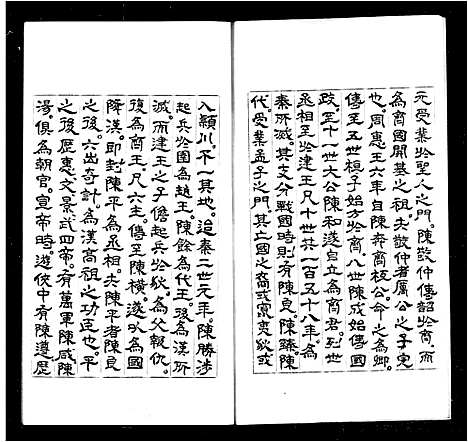 元受業於聖人之門。陳敬仲傳韶於齊。而
為齊國開基之祖。夫敬仲者厲公之子完
也。周惠王六年自陳奔齊桓公。命之為卿。
傳至五世桓子始方於齊八世陳成始傳國
政。至十一世大公陳和遂自立為齊君。列世
丞相至於建王凡十世共一百五十八年。為
秦所滅。其支分戰國時則有陳良。陳臻陳
代。受業孟子之門。其亡國之裔或蠻夷狄或
入穎川。不一其地。追秦二世元年。陳勝涉
起兵於園為趙王。陳餘為代王。後為漢所
滅。而建王之子儋起兵於狄。為父報仇。
後為齊王。凡六主。傳至陳橫。遂以為國
降漢。即封陳平為丞相。夫陳平者陳良
之後。六出奇計。為漢高祖之功臣也。平
之後歷惠文景武四帝。有萬軍陳咸陳
湯。俱為朝官。宣帝時。遊俠中有陳遵歷